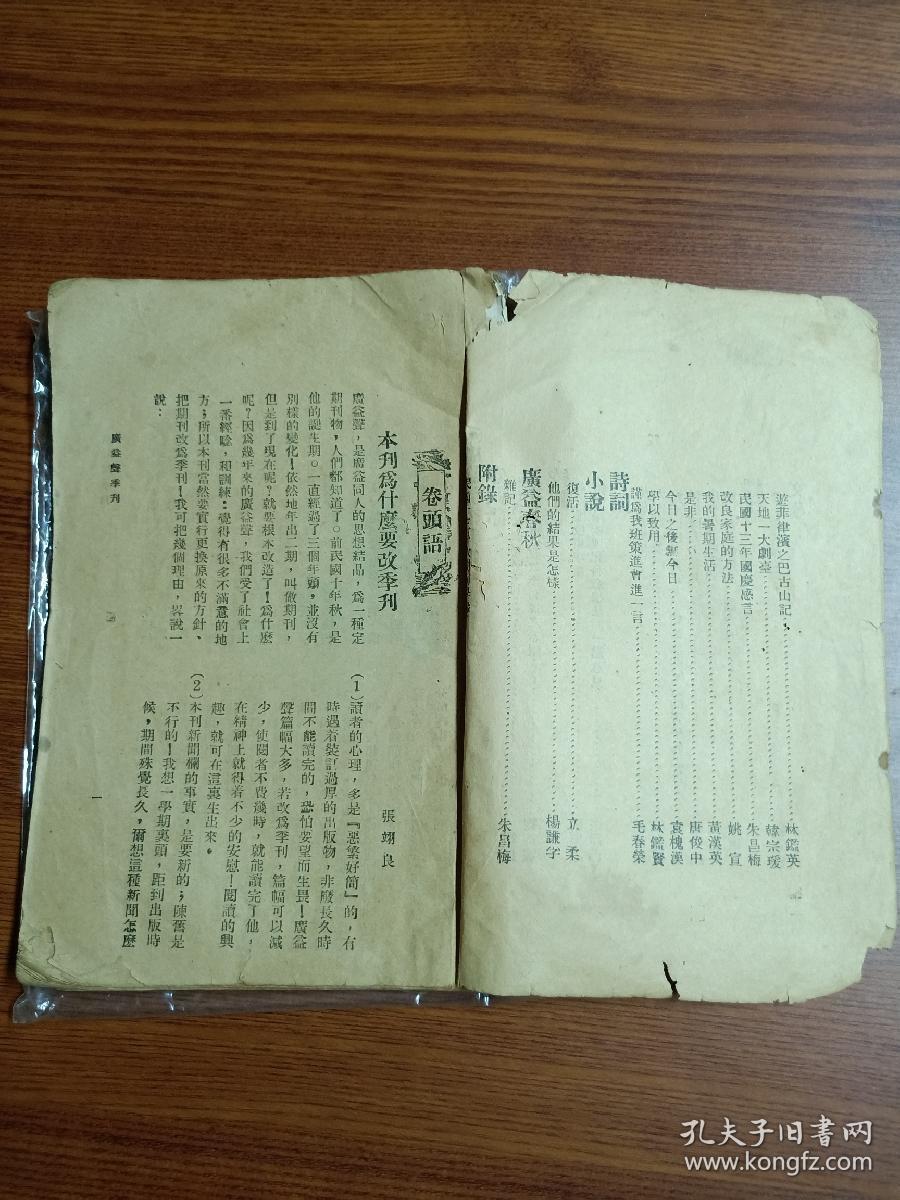 遊菲律濱之巴古山記……林鑑英
天地一大劇臺……韓宗瑗
民國十三年國慶感言……朱昌梅
改良家庭的方法……姚宣
我的暑期生活……黃漢英
是非……唐俊中
今日之後無今日……袁槐漢
學以致用……林鑑賢
謹爲我班策進會進一言……毛春榮
詩詞
小說
復活……立柔
他們的結果是怎樣……楊謙字
廣益春秋
雜記……朱昌梅
附錄
卷頭語
本刊爲什麼要改季刊
張翊良
廣益聲，是廣益同人的思想結晶，爲一種定
期刊物，人們都知道了。前民國十年秋，是
他的誕生期。一直經過了三個年頭，並沒有
別樣的變化！依然地年出二期，叫做期刊，
但是到了現在呢？就要根本改造了！爲什麼
呢？因爲幾年來的廣益聲，我們受了社會上
一番經驗，和訓練：覺得有很多不滿意的地
方；所以本刊當然要實行更換原來的方針、
把期刊改爲季刊！我可把幾個理由，畧說一
說：
(1)讀者的心理，多是『惡繁好簡』的，有
時遇着裝訂過厚的出版物，非廢長久時
間不能讀完的，恐怕要望而生畏！廣益
聲篇幅大多，若改爲季刊，篇幅可以減
少，使閱者不費幾時，就能讀完了他，
在精神上就得着不少的安慰！閱讀的興
趣，就可在這裏生出來。
(2)本刊新聞欄的事實，是要新的；陳舊是
不行的！我想一學期裏頭，距到出版時
候，期間殊覺長久，爾想這種新聞怎麼
廣益聲季刊
一
孔夫子旧书网
www.kongfz.com